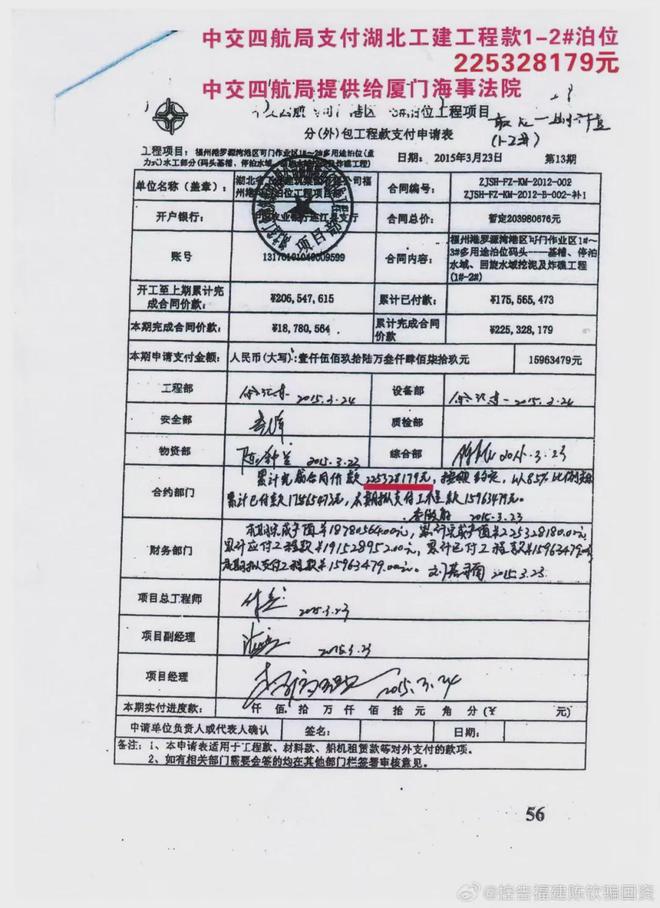 中交四航局支付湖北工建工程款1-2#泊位
225328179元
中交四航局提供给厦门海事法院
泊位工程项目
(1-2#)
分(外)包工程款支付申请表
工程项目: 福州港罗源湾港区可门作业区1#~3#多用途泊位(重力式)水工部分(码头基槽、停泊水域、回旋水域挖泥及炸礁工程)
日期: 2015年3月23日
第13期
单位名称(盖章):
合同编号:
ZJSH-FZ-KM-2012-002
ZJSH-FZ-KM-2012-B-002-补1
项目部
开户银行:
合同总价:
暂定203980676元
账号
合同内容:
福州港罗源湾港区可门作业区1#~
3#多用途泊位码头----基槽、停泊
水域、回旋水域挖泥及炸礁工程
(1#-2#)
开工至上期累计完
成合同价款:
¥206,547,615
累计已付款:
¥175,565,473
本期完成合同价款:
¥18,780,564
累计完成合同价
款:
¥225,328,179
本期申请支付金额:
人民币(大写):壹仟伍佰玖拾陆万叁仟肆佰柒拾玖元
15963479元
工程部
2015.3.24
设备部
2015.3.24
安全部
质检部
物资部
2015.3.23
综合部
2015.3.23
合约部门
累计完成合同价款225328179元, 按合约定, 以85%比例支付
累计已付款175565472元, 本期拟支付工程款15963479元。
2015.3.23
财务部门
本期完成产值¥18780564.00元, 累计完成产值¥225328180.00元,
累计应付工程款¥191528952.00元, 累计已付工程款¥15963479.00
本期拟支付工程款¥15963479.00元。
2015.3.23
项目总工程师
2015.3.23
项目副经理
2015.3.23
项目经理
2015.3.24
本期实付进度款:
仟 佰 拾 万 仟 佰 拾 元 角 分(¥ 元)
申请单位负责人或代表人确认
签名:
日期:
备注: 1、本申请表适用于工程款、材料款、船机租赁款等对外支付的款项。
2、如有相关部门需要会签的均在其他部门栏签署审核意见。
56
@控告福建陈钦骗国资